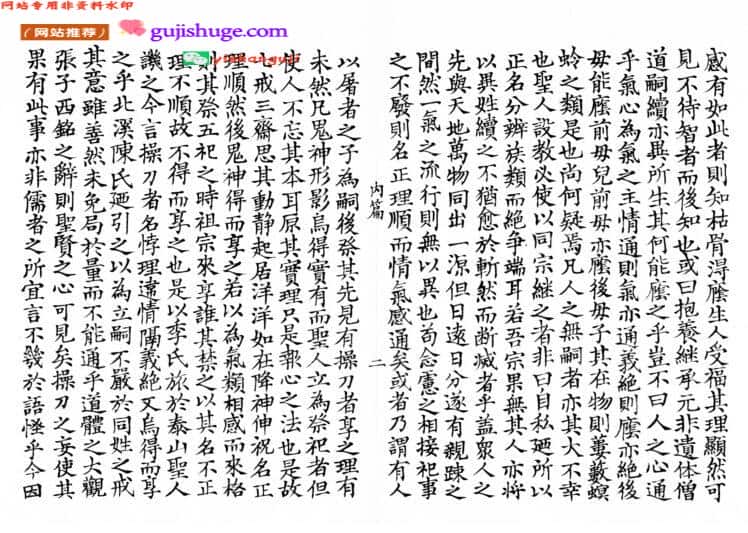 网站专用非资料水印
（网站推荐） gujishuge.com
感有如此者則知枯骨得廕生人受福其理顯然可
見不待智者而後知也或曰抱養継承元非遺体僧
道嗣續亦異所生其何能廕之乎豈不曰人之心通
乎氣心為氣之主情通則氣亦通義絕則廕亦絕後
母能廕前母兒前母亦廕後母子其在物則蔞藪螟
蛉之類是也尚何疑焉凡人之無嗣者亦其大不幸
也聖人設教必使以同宗継之者非曰自私廼所以
正名分辨族類而絕爭端耳若吾宗果無其人亦將
以異姓續之不猶愈於斬然而斷滅者乎盖衆人之
先與天地萬物同出一源但日遠日分遂有親踈之
間然一氣之流行則無以異也苟念慮之相接祀事
之不廢則名正理順而情氣感通矣或者乃謂有人
内篇
二
以屠者之子為嗣後祭其先見有操刀者享之理有
未然凡鬼神形影烏得實有而聖人立為祭祀者但
使人不忘其本耳原其實理只是報心之法也是故
七戒三齋思其動静起居洋洋如在降神伸祝名正
理順然後鬼神得而享之若以為氣類相感而來格
則其祭五祀之時祖宗來享誰其禁之以其名不正
理不順故不得而享之也是以季氏旅於泰山聖人
譏之今言操刀者名悖理違情閡義絕又烏得而享
之乎北溪陳氏廼引之以為立嗣不嚴於同姓之戒
其意雖善然未免局於量而不能通乎道體之大觀
張子西銘之辭則聖賢之心可見矣操刀之妄使其
果有此事亦非儒者之所宜言不幾於語怪乎今因